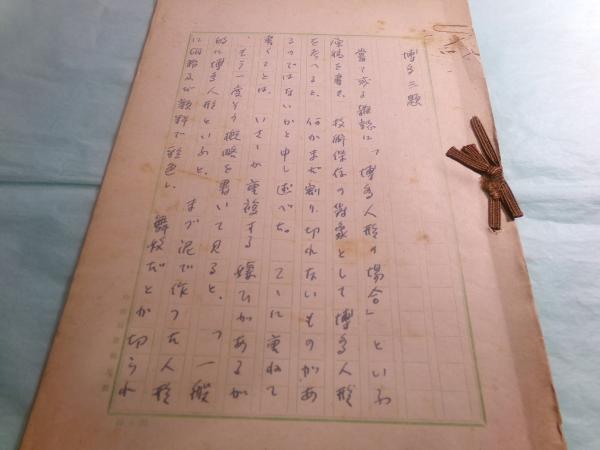 博多三題
嘗て或る雑誌に「博多人形の場合」といふ
原稿を書き、技術保存の対象として博多人形
を考へると、何かまだ割り切れないものがあ
るのではないかと申し述べた。こゝに重ねて
書くことは、いさゝか重複する嫌ひがあるが
、もう一度その概略を書いて見ると、つ一般
的に博多人形といふと、まづ泥で作つた人形
に胡粉及び顔料で彩色し、舞妓だとか切られ